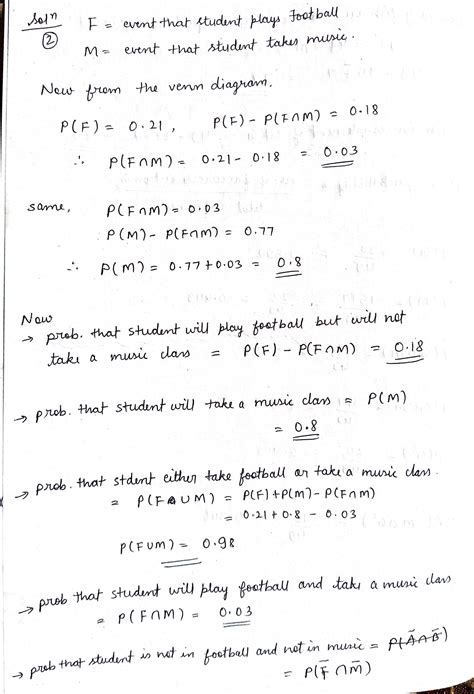 Solⁿ F = event that student plays Football
② M = event that student takes music.
Now from the venn diagram.
P(F) = 0.21, P(F) - P(F∩M) = 0.18
∴ P(F∩M) = 0.21 - 0.18 = 0.03
same, P(F∩M) = 0.03
P(M) - P(F∩M) = 0.77
∴ P(M) = 0.77 + 0.03 = 0.8
Now
→ prob. that student will play football but will not
take a music class = P(F) - P(F∩M) = 0.18
→ prob. that student will take a music class = P(M)
= 0.8
→ prob. that stdent either take football or take a music class.
= P(F∪M) = P(F) + P(M) - P(F∩M)
= 0.21 + 0.8 - 0.03
P(F∪M) = 0.98
→ prob that student will play football and take a music class
= P(F∩M) = 0.03
→ prob that student is not in football and not in music = P(A̅∩B̅)
= P(F̅∩M̅)